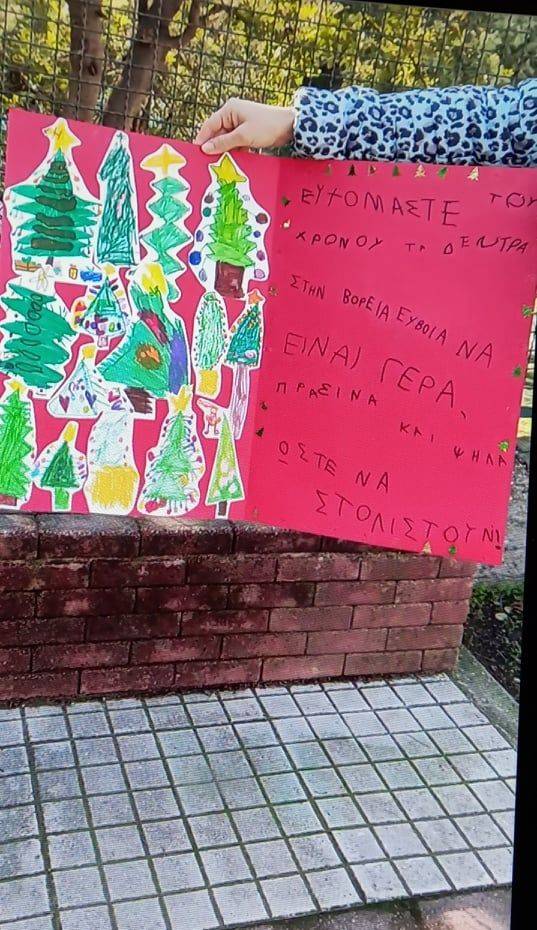 ΕΥΧΟΜΑΣΤΕ ΤΟΥ
ΧΡΟΝΟΥ ΤΑ ΔΕΝΤΡΑ
ΣΤΗΝ ΒΟΡΕΙΑ ΕΥΒΟΙΑ ΝΑ
ΕΙΝΑΙ ΓΕΡΑ,
ΠΡΑΣΙΝΑ
ΚΑΙ ΨΗΛΑ
ΟΣΤΕ ΝΑ
ΣΤΟΛΙΣΤΟΥΝ!